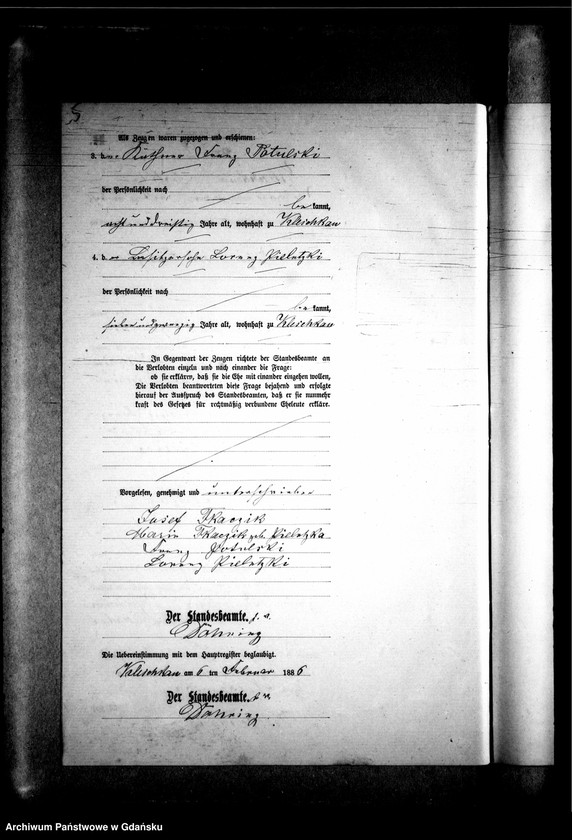 Als Zeugen waren zugezogen und erschienen:
3. der Käthner Franz Potulski
der Persönlichkeit nach
be kannt,
acht und dreißig Jahre alt, wohnhaft zu Kleschkau
4. der Besitzersohn Lorenz Pieletzki
der Persönlichkeit nach
be kannt,
siebenundzwanzig Jahre alt, wohnhaft zu Kleschkau
In Gegenwart der Zeugen richtete der Standesbeamte an
die Verlobten einzeln und nach einander die Frage:
ob sie erklären, daß sie die Ehe mit einander eingehen wollen,
Die Verlobten beantworteten diese Frage bejahend und erfolgte
hierauf der Ausspruch des Standesbeamten, daß er sie nunmehr
kraft des Gesetzes für rechtmäßig verbundene Eheleute erkläre.
Vorgelesen, genehmigt und unterschrieben
Josef Tkaczik
Marie Tkaczik geb. Pieletzka
Franz Potulski
Lorenz Pieletzki
Der Standesbeamte.
Döhring
Die Uebereinstimmung mit dem Hauptregister beglaubigt.
Kleschkau am 6 ten Februar 1886
Der Standesbeamte.
Döhring
Archiwum Państwowe w Gdańsku